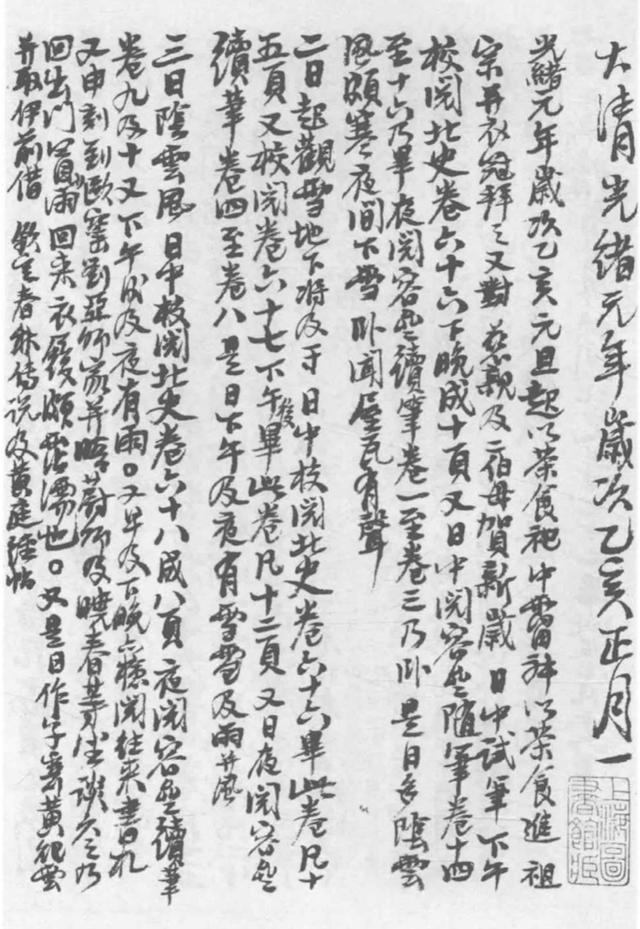 大清光緒元年歲次乙亥正月一
光緒元年歲次乙亥元旦起以茶食祀中霤神以茶食進 祖
宗并衣冠拜之又對 慈親及二伯母賀新歲 日中試筆下午
校閱北史卷六十六下晚成十頁又日中閱容齋隨筆卷十四
至十六乃畢夜閱容齋續筆卷一至卷三乃卧是日多陰雲
風頗寒夜間下雪卧聞屋瓦有聲
二日起觀雪地下將及寸 日中校閱北史卷六十六畢此卷凡十
五頁又校閱卷六十七下午後畢此卷凡十二頁又日夜閱容齋
續筆卷四至卷八是日下午及夜有雪雪及雨并風
三日陰雲風 日中校閱北史卷六十八成八頁夜閱容齋續筆
卷九及十又下午及夜有雨又早及下晚閱往來書札
又申刻到劉亞師家并晤蔚師及曉春等坐談久之乃
回出門買雨回來衣履頗霑濡也又是日作字寄黃
并取伊前借 欽定春秋傳說及黃庭經帖
上海圖書館藏